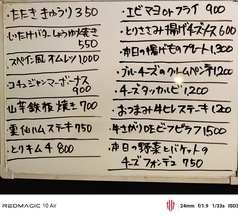 たたききゅうり 350
しいたけバターしょうゆ焼き
550
スペイン風オムレツ 1,000
コチュジャンマーボーナス
900
山芋鉄板焼き 700
重仙ハムステーキ 750
とりキムチ 800
・エビマヨ or フライ 900
・とりささみ揚げチーズソース 600
・本日の揚げものプレート 1,300
・ブルーチーズのクリームペンネ 1200
・チーズタッカルビ 1200
・おつまみ牛ヒレステーキ 1,200
・牛さがりDEビーフピラフ 1500
・本日の野菜とバケットの
チーズフォンデュ 750
REDMAGIC 10 Air
24mm f/1.9 1/33s ISO